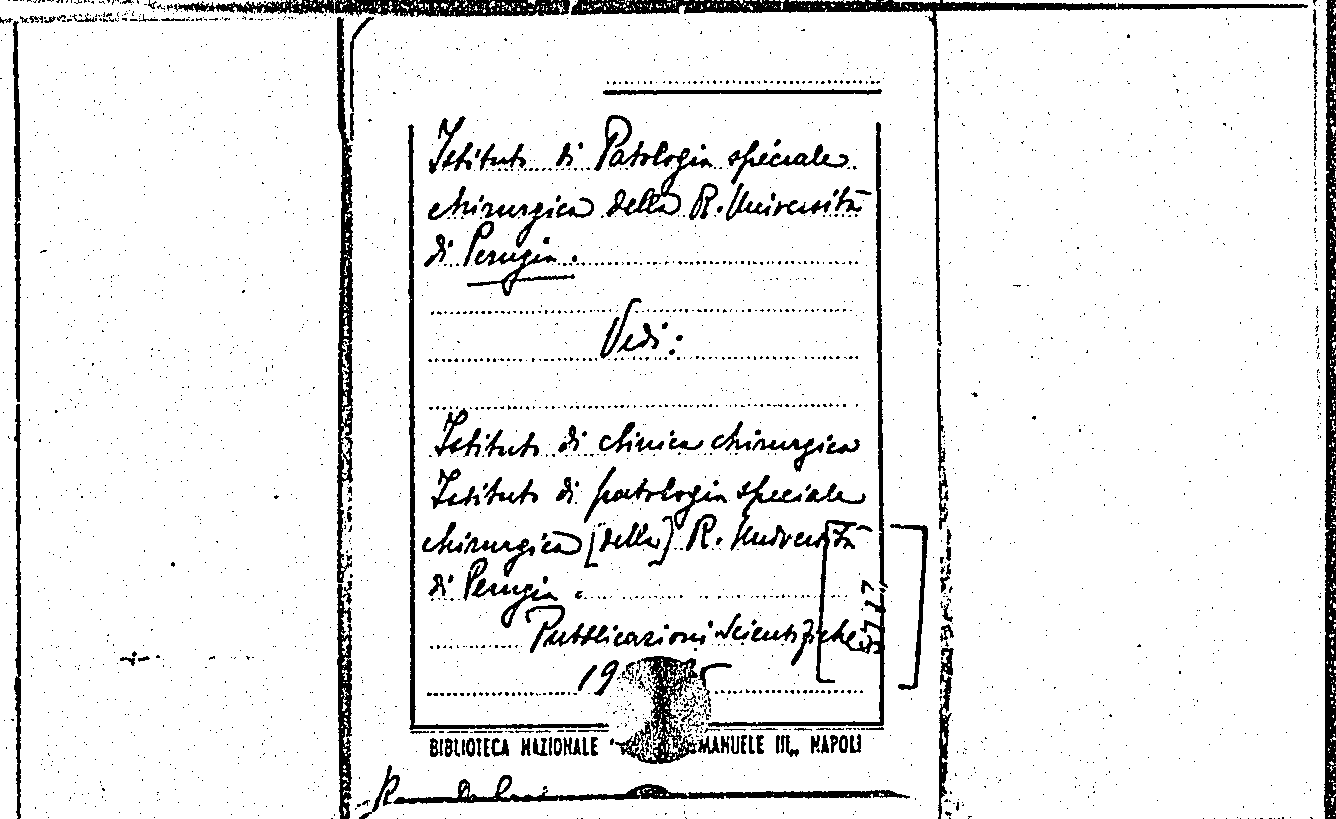 Istituto di Patologia speciale
chirurgica della R. Università
di Perugia.
Vedi:
Istituto di clinica chirurgica
Istituto di patologia speciale
chirurgica [della] R. Università
di Perugia.
Pubblicazioni Scientifiche
BIBLIOTECA NAZIONALE MANUELE III,, NAPOLI